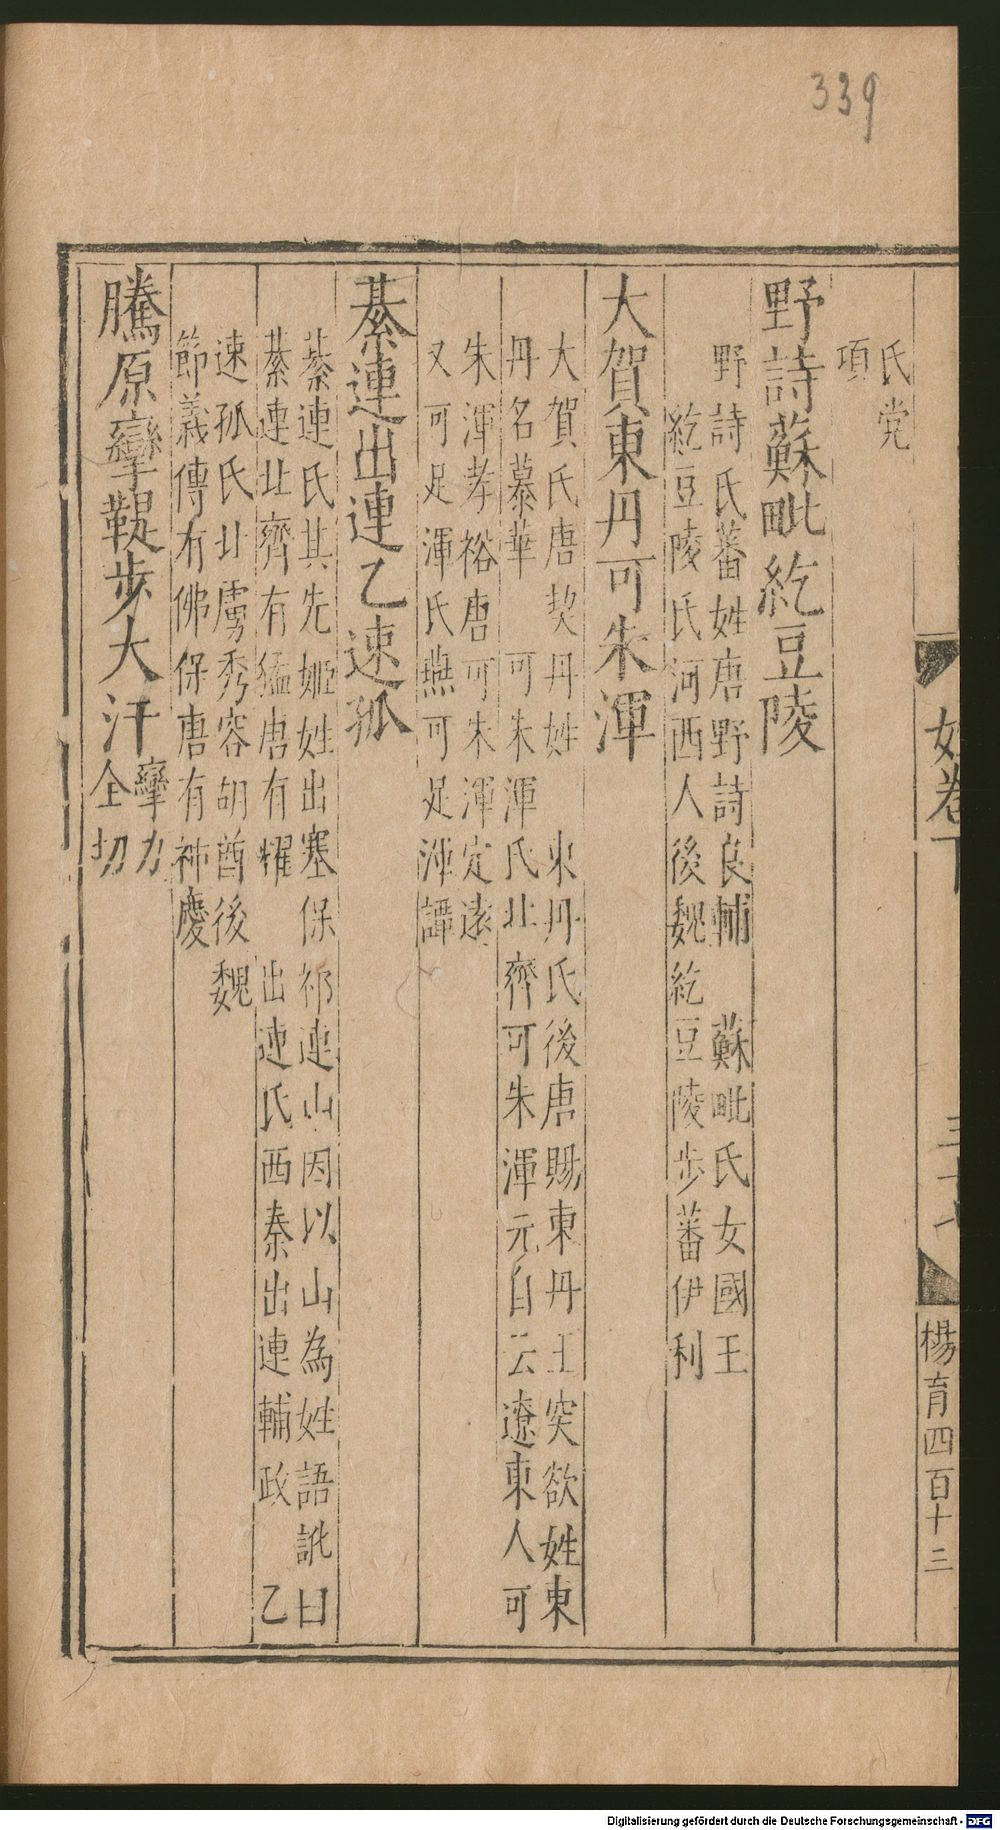 339
姓卷下
楊育四百十三
氏党
項
野詩蘇毗紇豆陵
野詩氏蕃姓唐野詩良輔　蘇毗氏女國王
紇豆陵氏河西人後魏紇豆陵步蕃伊利
大賀東丹可朱渾
大賀氏唐契丹姓　東丹氏後唐賜東丹王突欲姓東
丹名慕華　可朱渾氏北齊可朱渾元自云遼東人可
朱渾孝裕唐可朱渾定遠
又可足渾氏燕可足渾譚
綦連出連乙速孤
綦連氏其先姬姓出塞保祁連山因以山為姓語訛曰
綦連北齊有猛唐有耀　出連氏西秦出連輔政　乙
速孤氏北虜秀容胡酋後魏
節義傳有佛保唐有神慶
騰原攣鞮步大汗攣力
仝切
Digitalisierung gefördert durch die Deutsche Forschungsgemeinschaft - DFG